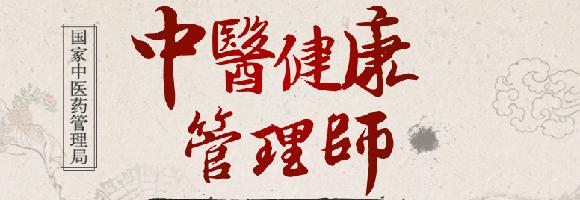 国家中医药管理局
中醫健康
管理師